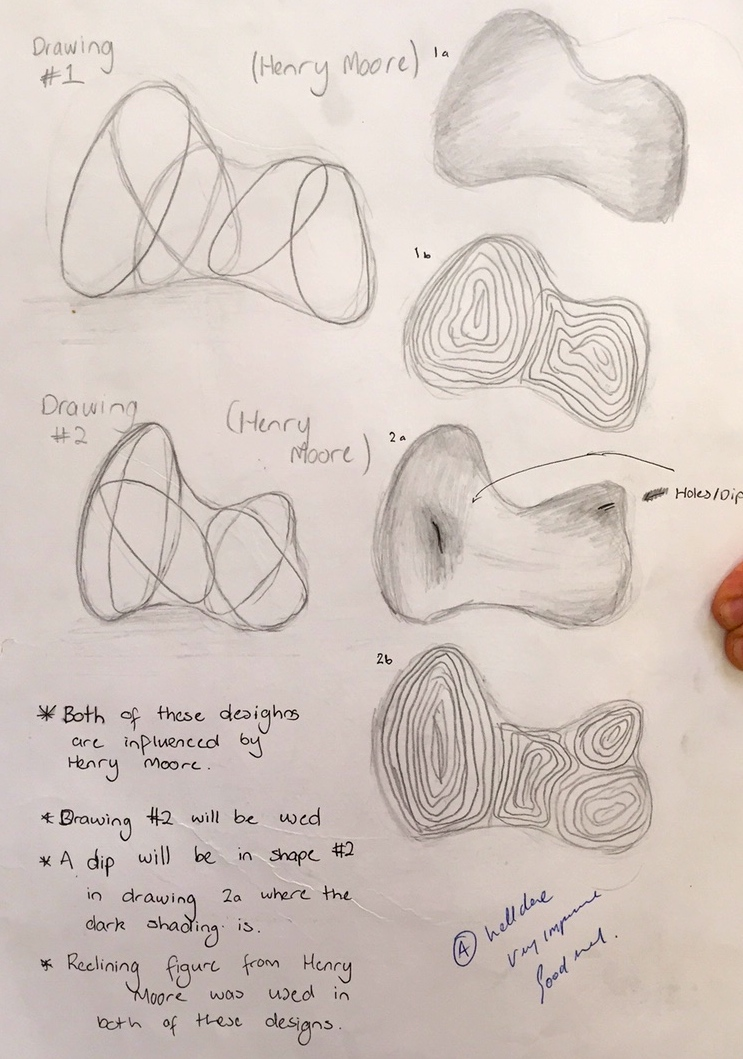 Drawing
#1
(Henry Moore)
1a
1b
Drawing
#2
(Henry
Moore)
2a
Holes/Dip
2b
* Both of these desighns
are influenced by
Henry Moore.
* Drawing #2 will be used
* A dip will be in shape #2
in drawing 2a where the
dark shading is.
* Reclining figure from Henry
Moore was used in
both of these designs.
A Well done
Very
Good